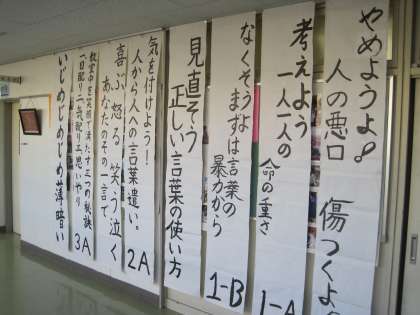 やめようよ。
人の悪口
傷つくよ。
考えよう
一人一人の
命の重さ
1-A
なくそうよ
まずは言葉の
暴力から
1-B
見直そう
正しい言葉の使い方
気を付けよう!
人から人への言葉遣い。
2A
喜ぶ怒る笑う泣く
あなたのその一言で
教室中を笑顔で満たす三つの秘訣
一目配り二気配り三、思いやり
3A
いじめじめじめ薄暗い